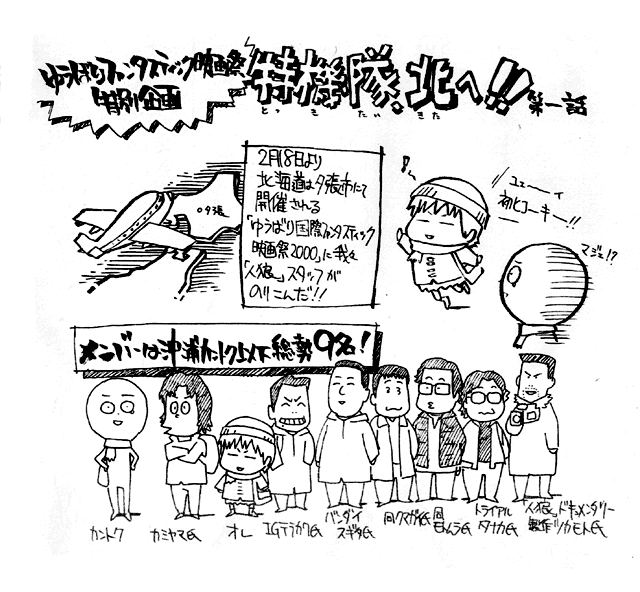 ゆうばりファンタスティック映画祭
特別企画
特機隊、北へ!!
とっきたい きた
第一話
2月18日より
北海道は夕張市にて
開催される
「ゆうばり国際ファンタスティック
映画祭2000」に我々
「人狼」スタッフが
のりこんだ!!
夕張
ユェーーイ
初ヒコーキー!!
マジェ!?
メンバーは沖浦カントク以下総勢9名!
カントク
カミヤマ氏
オレ
IGテラカワ氏
バンダイ
スギタ氏
同クマガイ氏
同
トライアル
タナカ氏
「人狼」ドキュメンタリー
製作ツカモト氏